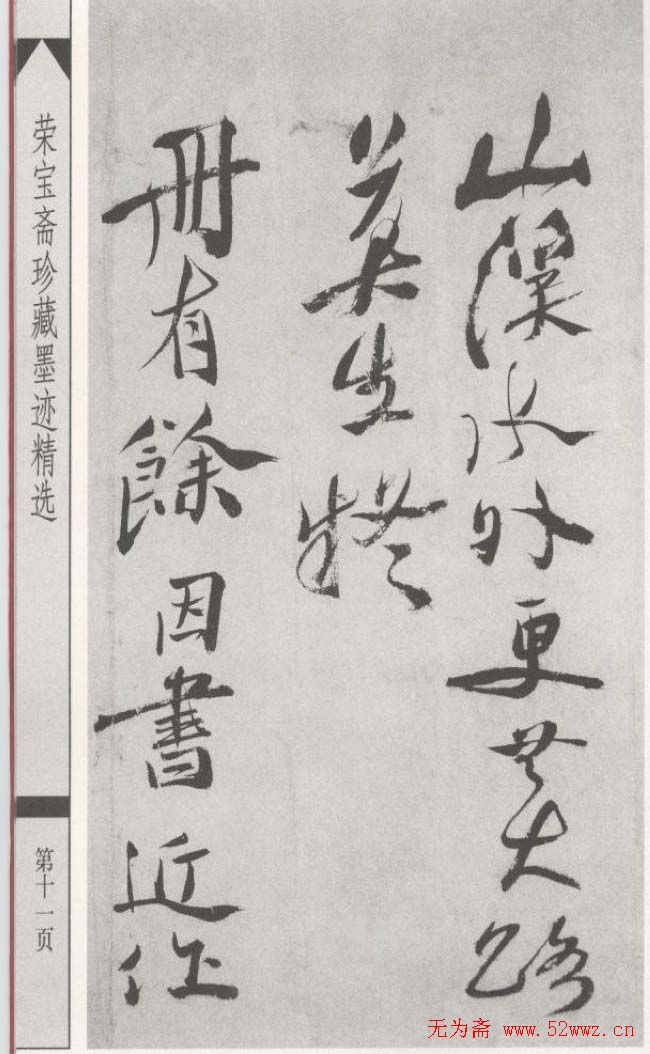 荣宝斋珍藏墨迹精选
第十一页
山深水外更無大路
莫生
冊有餘因書近作
无为斋 www.52wwz.cn